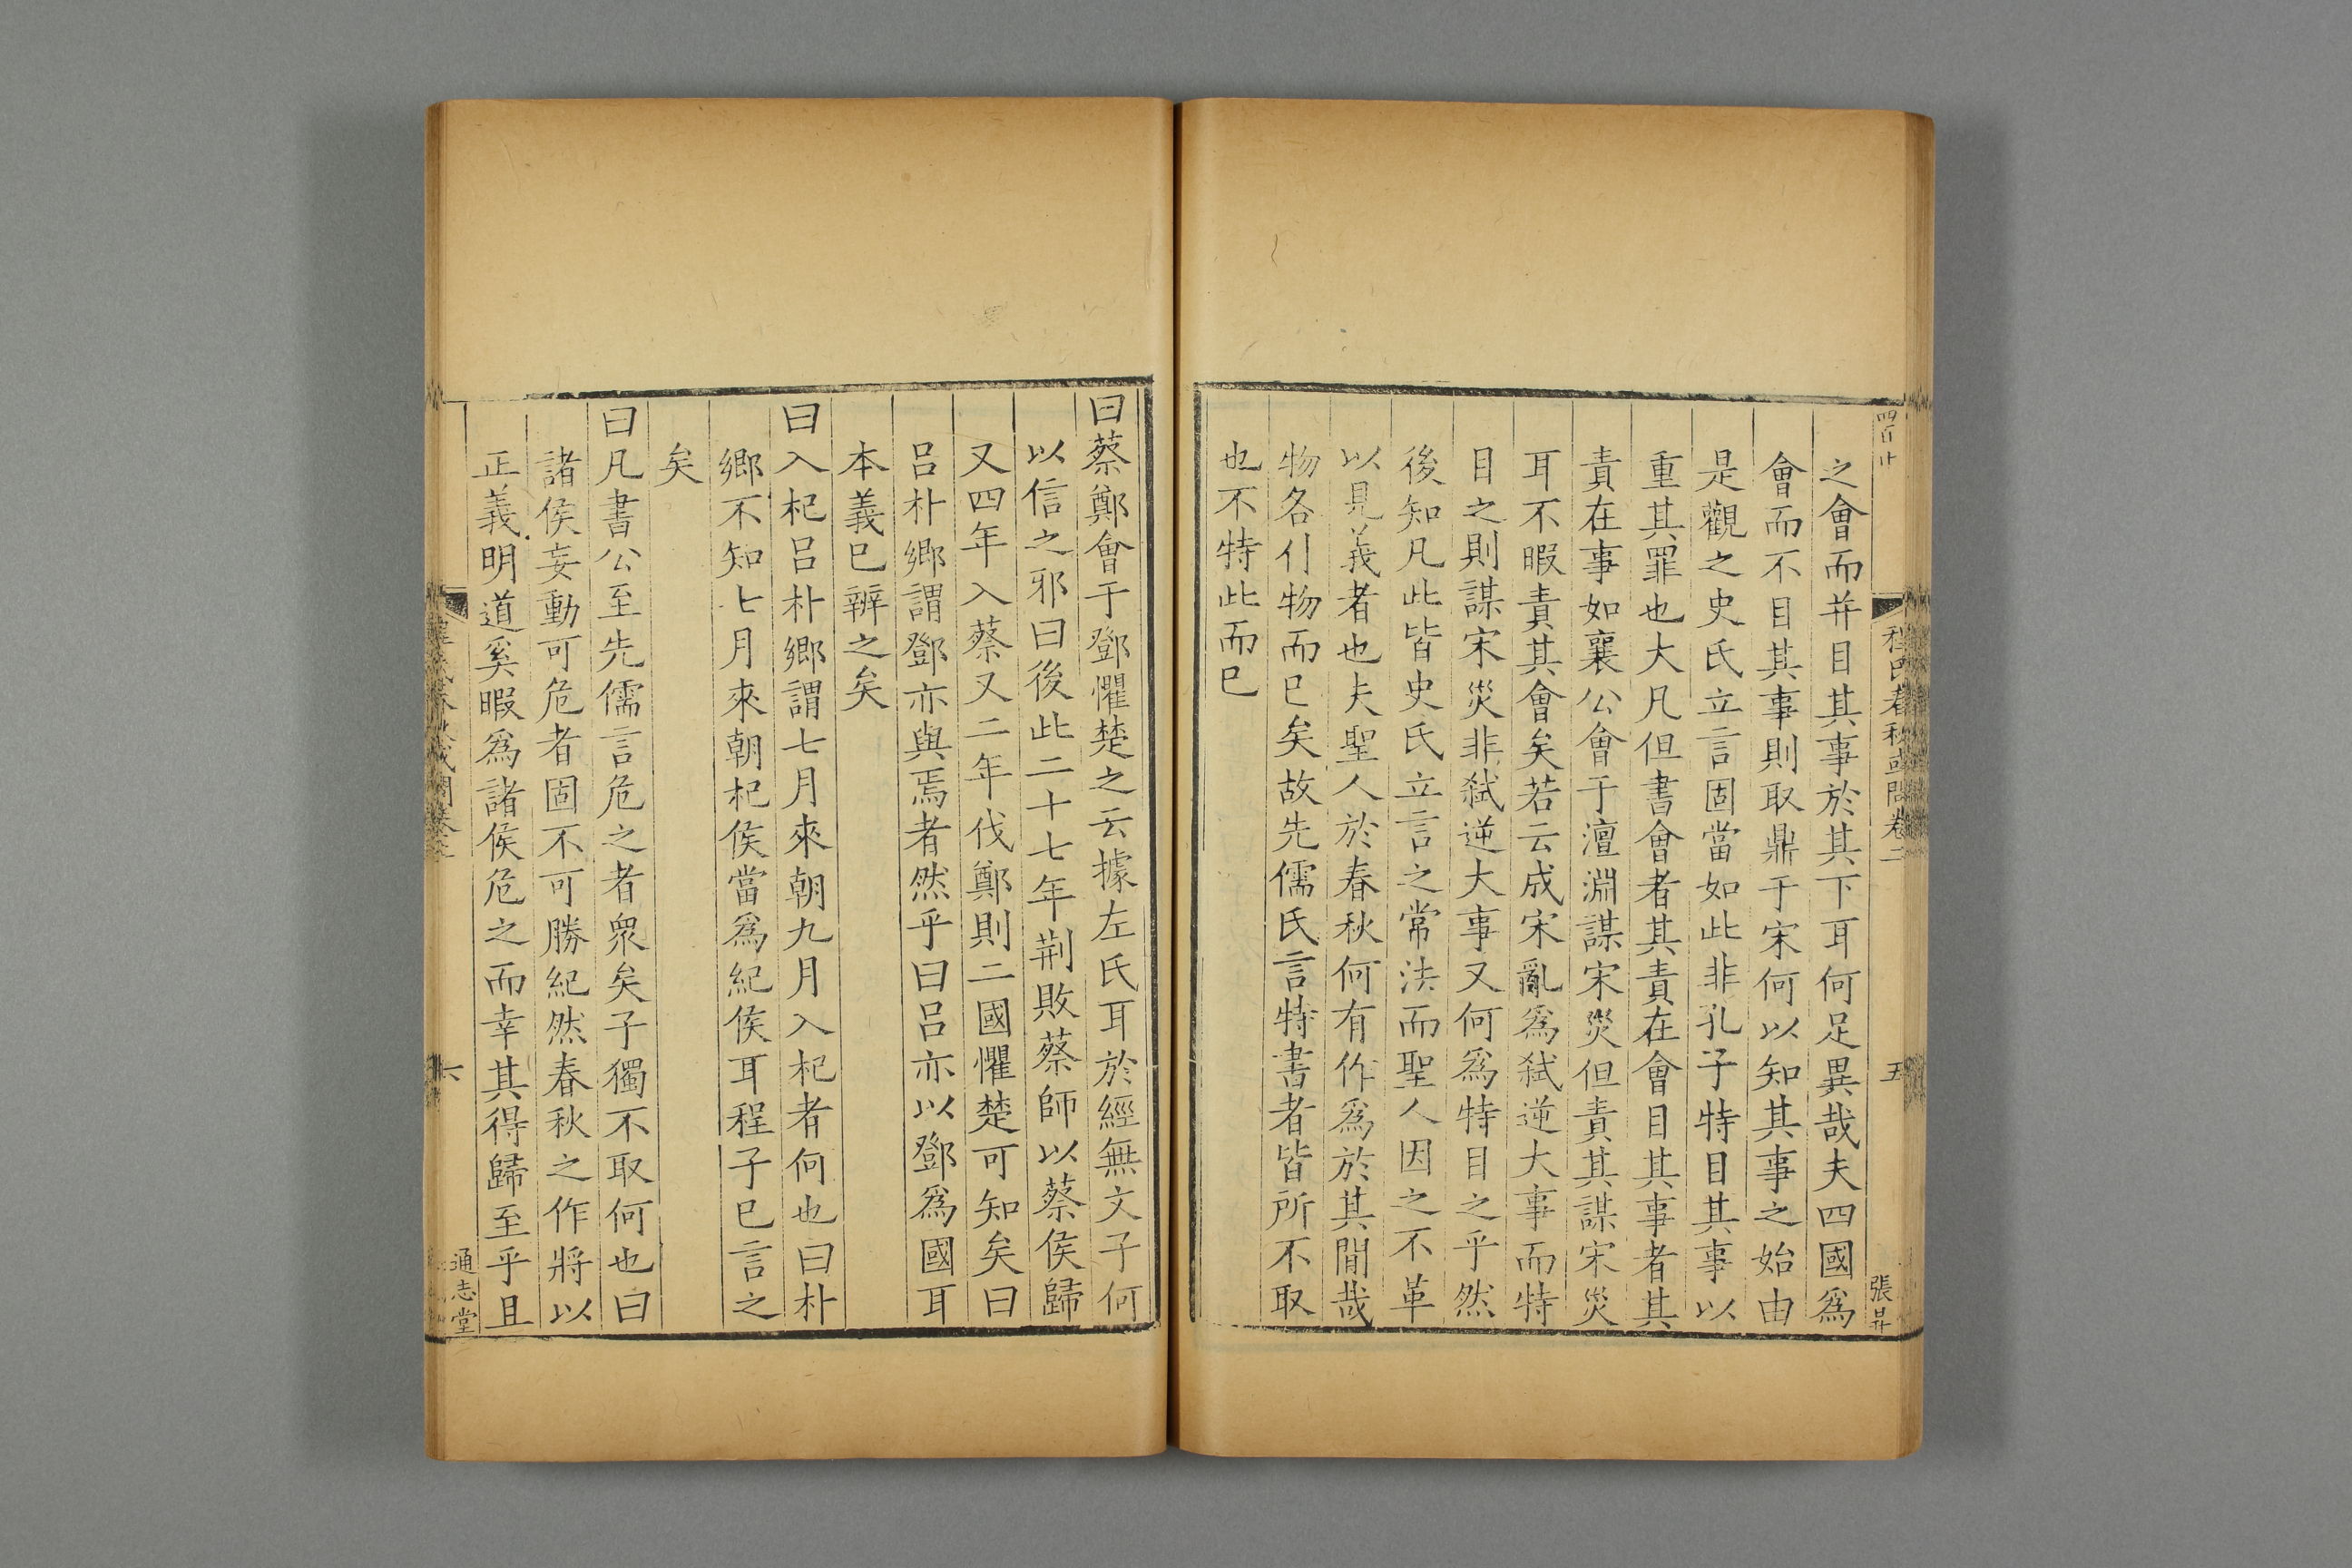 程氏春秋或問卷二
五
之會而并目其事於其下耳何足異哉夫四國爲
會而不目其事則取鼎于宋何以知其事之始由
是觀之史氏立言固當如此非孔子特目其事以
重其罪也大凡但書會者其責在會目其事者其
責在事如襄公會于澶淵謀宋災但責其謀宋災
耳不暇責其會矣若云成宋亂爲弒逆大事而特
目之則謀宋災非弒逆大事又何爲特目之乎然
後知凡此皆史氏立言之常法而聖人因之不革
以見義者也夫聖人於春秋何有作爲於其間哉
物各付物而已矣故先儒氏言特書者皆所不取
也不特此而已
曰蔡鄭會于鄧懼楚之云據左氏耳於經無文子何
以信之邪曰後此二十七年荆敗蔡師以蔡侯歸
又四年入蔡又二年伐鄭則二國懼楚可知矣曰
呂朴鄉謂鄧亦與焉者然乎曰呂亦以鄧爲國耳
本義已辨之矣
曰入杞呂朴鄉謂七月來朝九月入杞者何也曰朴
鄉不知七月來朝杞侯當爲紀侯耳程子已言之
矣
曰凡書公至先儒言危之者衆矣子獨不取何也曰
諸侯妄動可危者固不可勝紀然春秋之作將以
正義明道奚暇爲諸侯危之而幸其得歸至乎且
六
通志堂